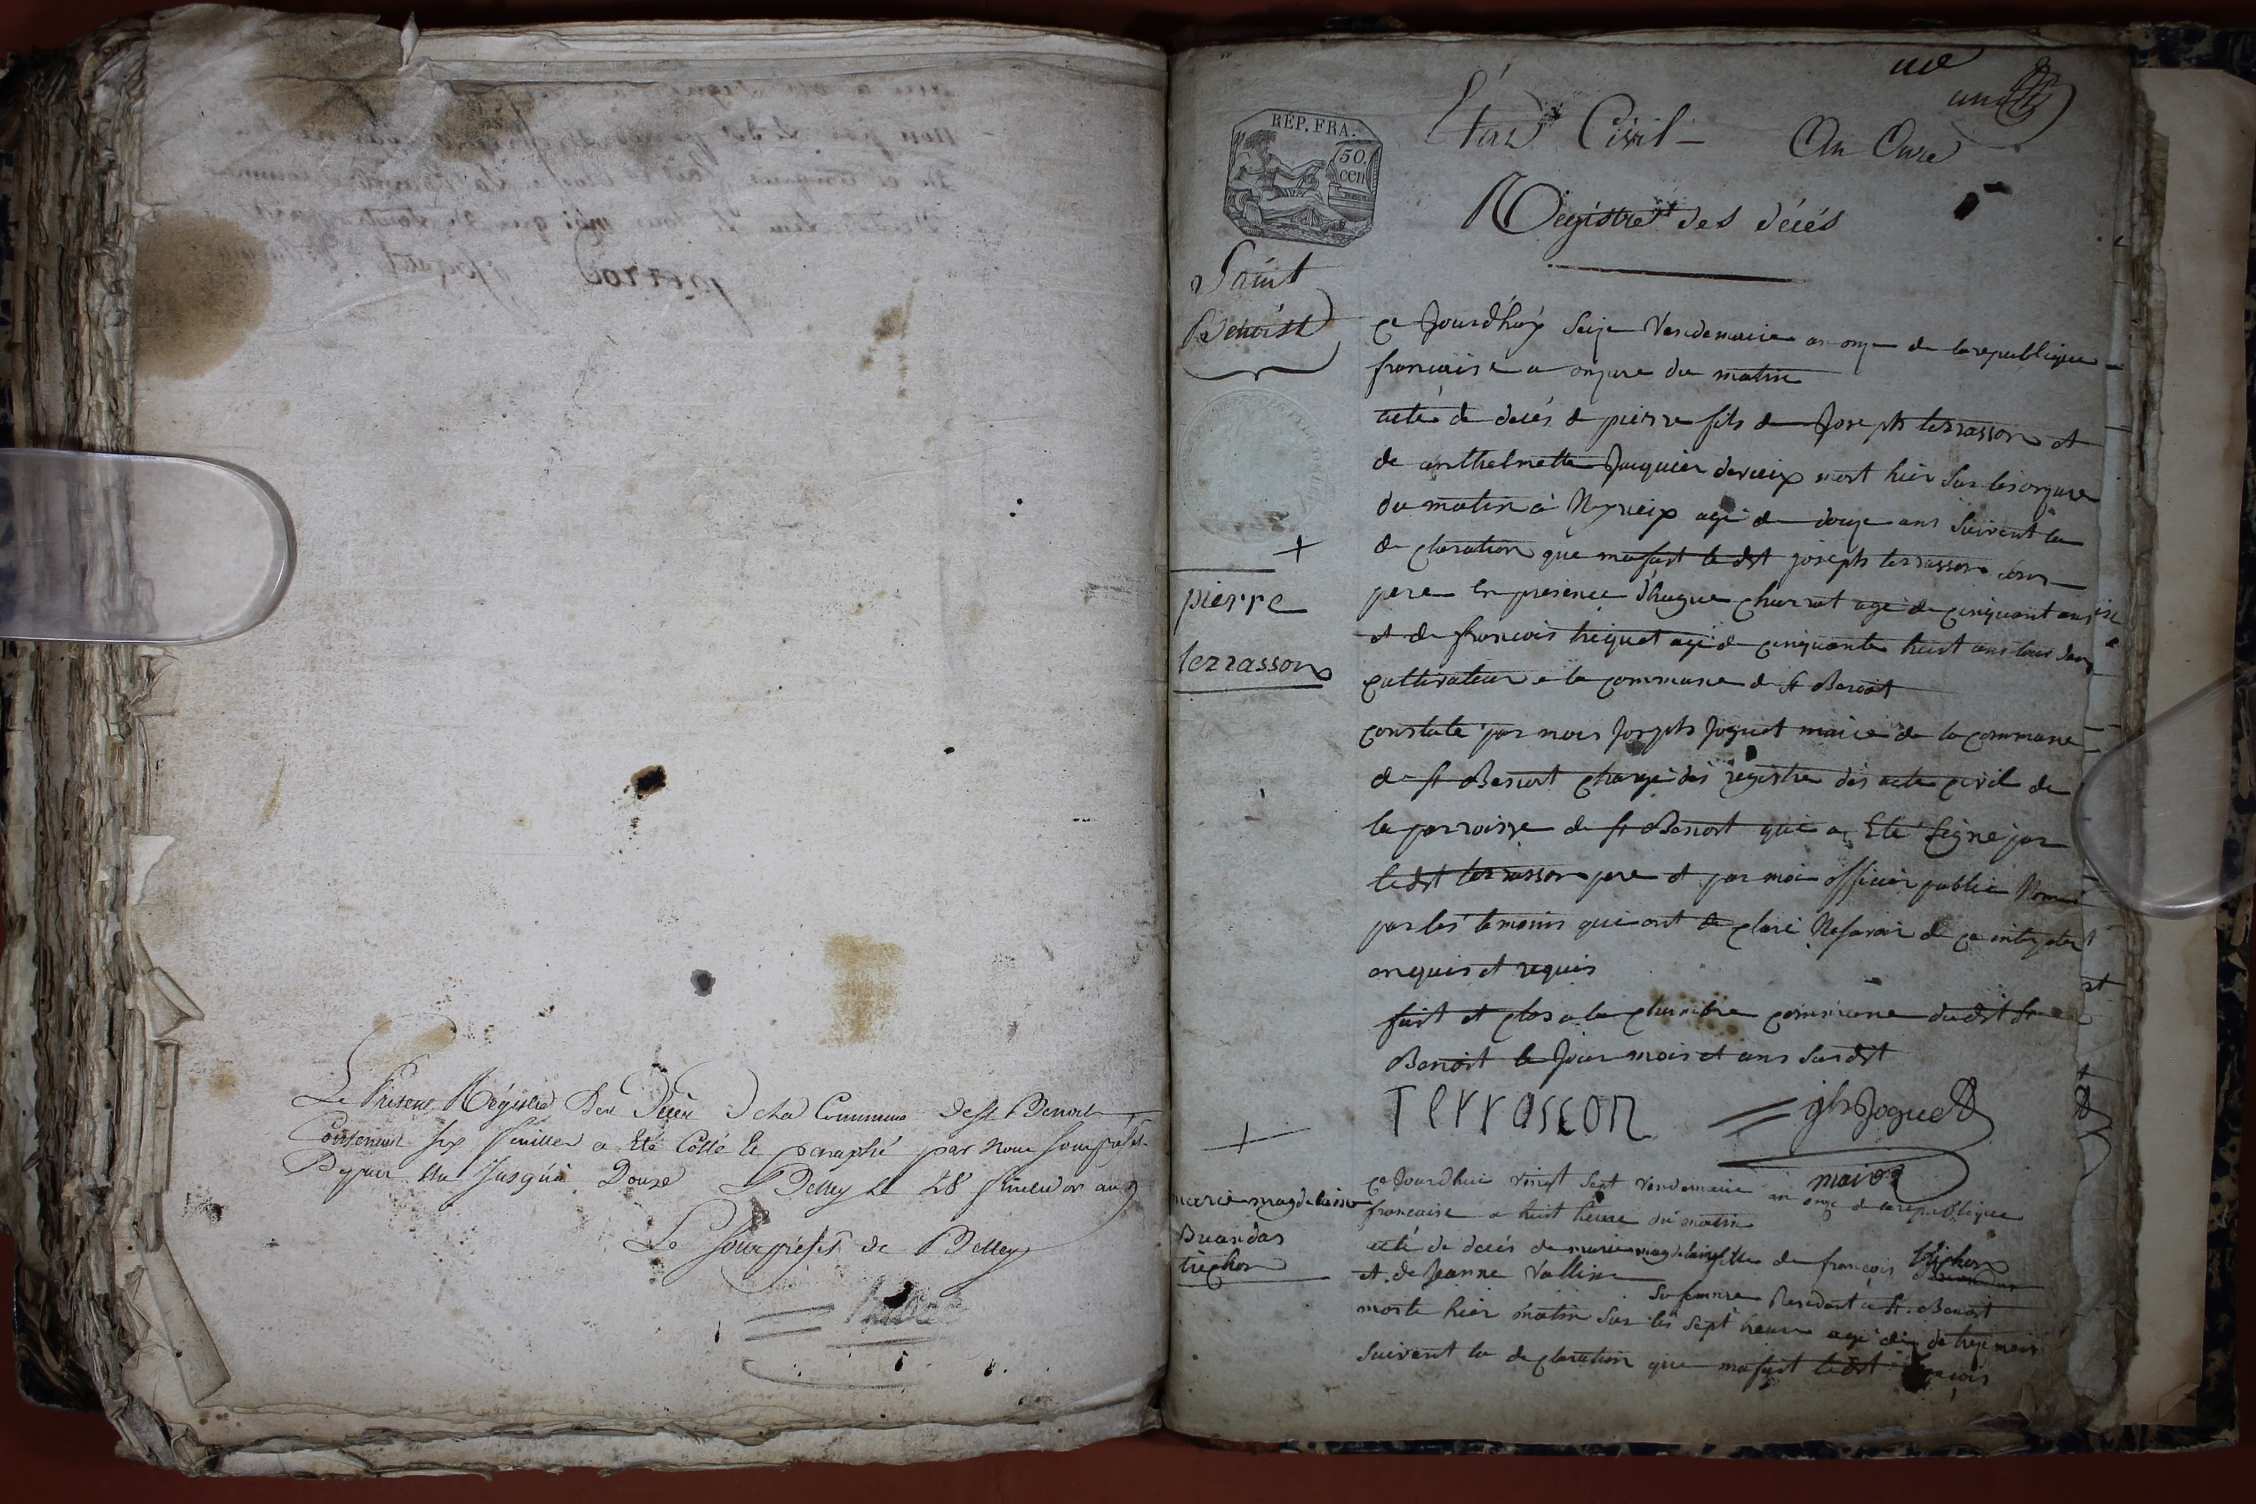 Le Présent Régistre Des Décès De la Commune de St Benoit
Contenant Six feuilles a Eté Cotté Et paraphé par Nous Sousprefet
Depuis Un Jusqu'à Douze Belley le 28 fructidor an 9
Le Souspréfet de Belley
une
Etat Civil - An Onze
RÉP. FRA.
50 cen
Régistre des décés
Saint
Benoist
ce Jourdhuy Seize Vendemaire an onze de la republique
francaise a onzure du matin
acte de decés de pierre fils de Joseph terrasson et
de anthelmette Juquier derieix mort hier Sur les onzure
du matin à Neyrieix agé de douze ans Suivent la
declaration que mafait le dit joseph terrasson son
pere En presence d'hugue charvet agé de cinquant ans
et de francois triquet agé de cinquante huit ans tous deux
cultivateur a la commune de St Benoit
+
pierre
terrasson
constaté par nous Joseph Joguet maire de la commune
de St Benoit chargé des registre des acte civil de
la parroisse de St Benoit qui a Eté Signé par
le dit terrasson pere et par moi officier public Non
par les temoins qui ont declaré Nesavoir de ce interpelez
anquis et requis
fait et clos a la chambre commune du dit St
Benoit le Jour mois et ans Susdit
Terrasson jph Joguet
maire
+
marie magdelaine
Buandas
trichon
ce Jourdhui vingt Sept vendemaire an onze de la republique
francaise a huit heure du matin
acté de decés de marie magdelaine fille de françois trichon
et de Jeanne Vallin Sa femme Residant a St. Benoit
morte hier matin Sur les Sept heure agé de de treze mois
Suivent la declaration que mafait le dit